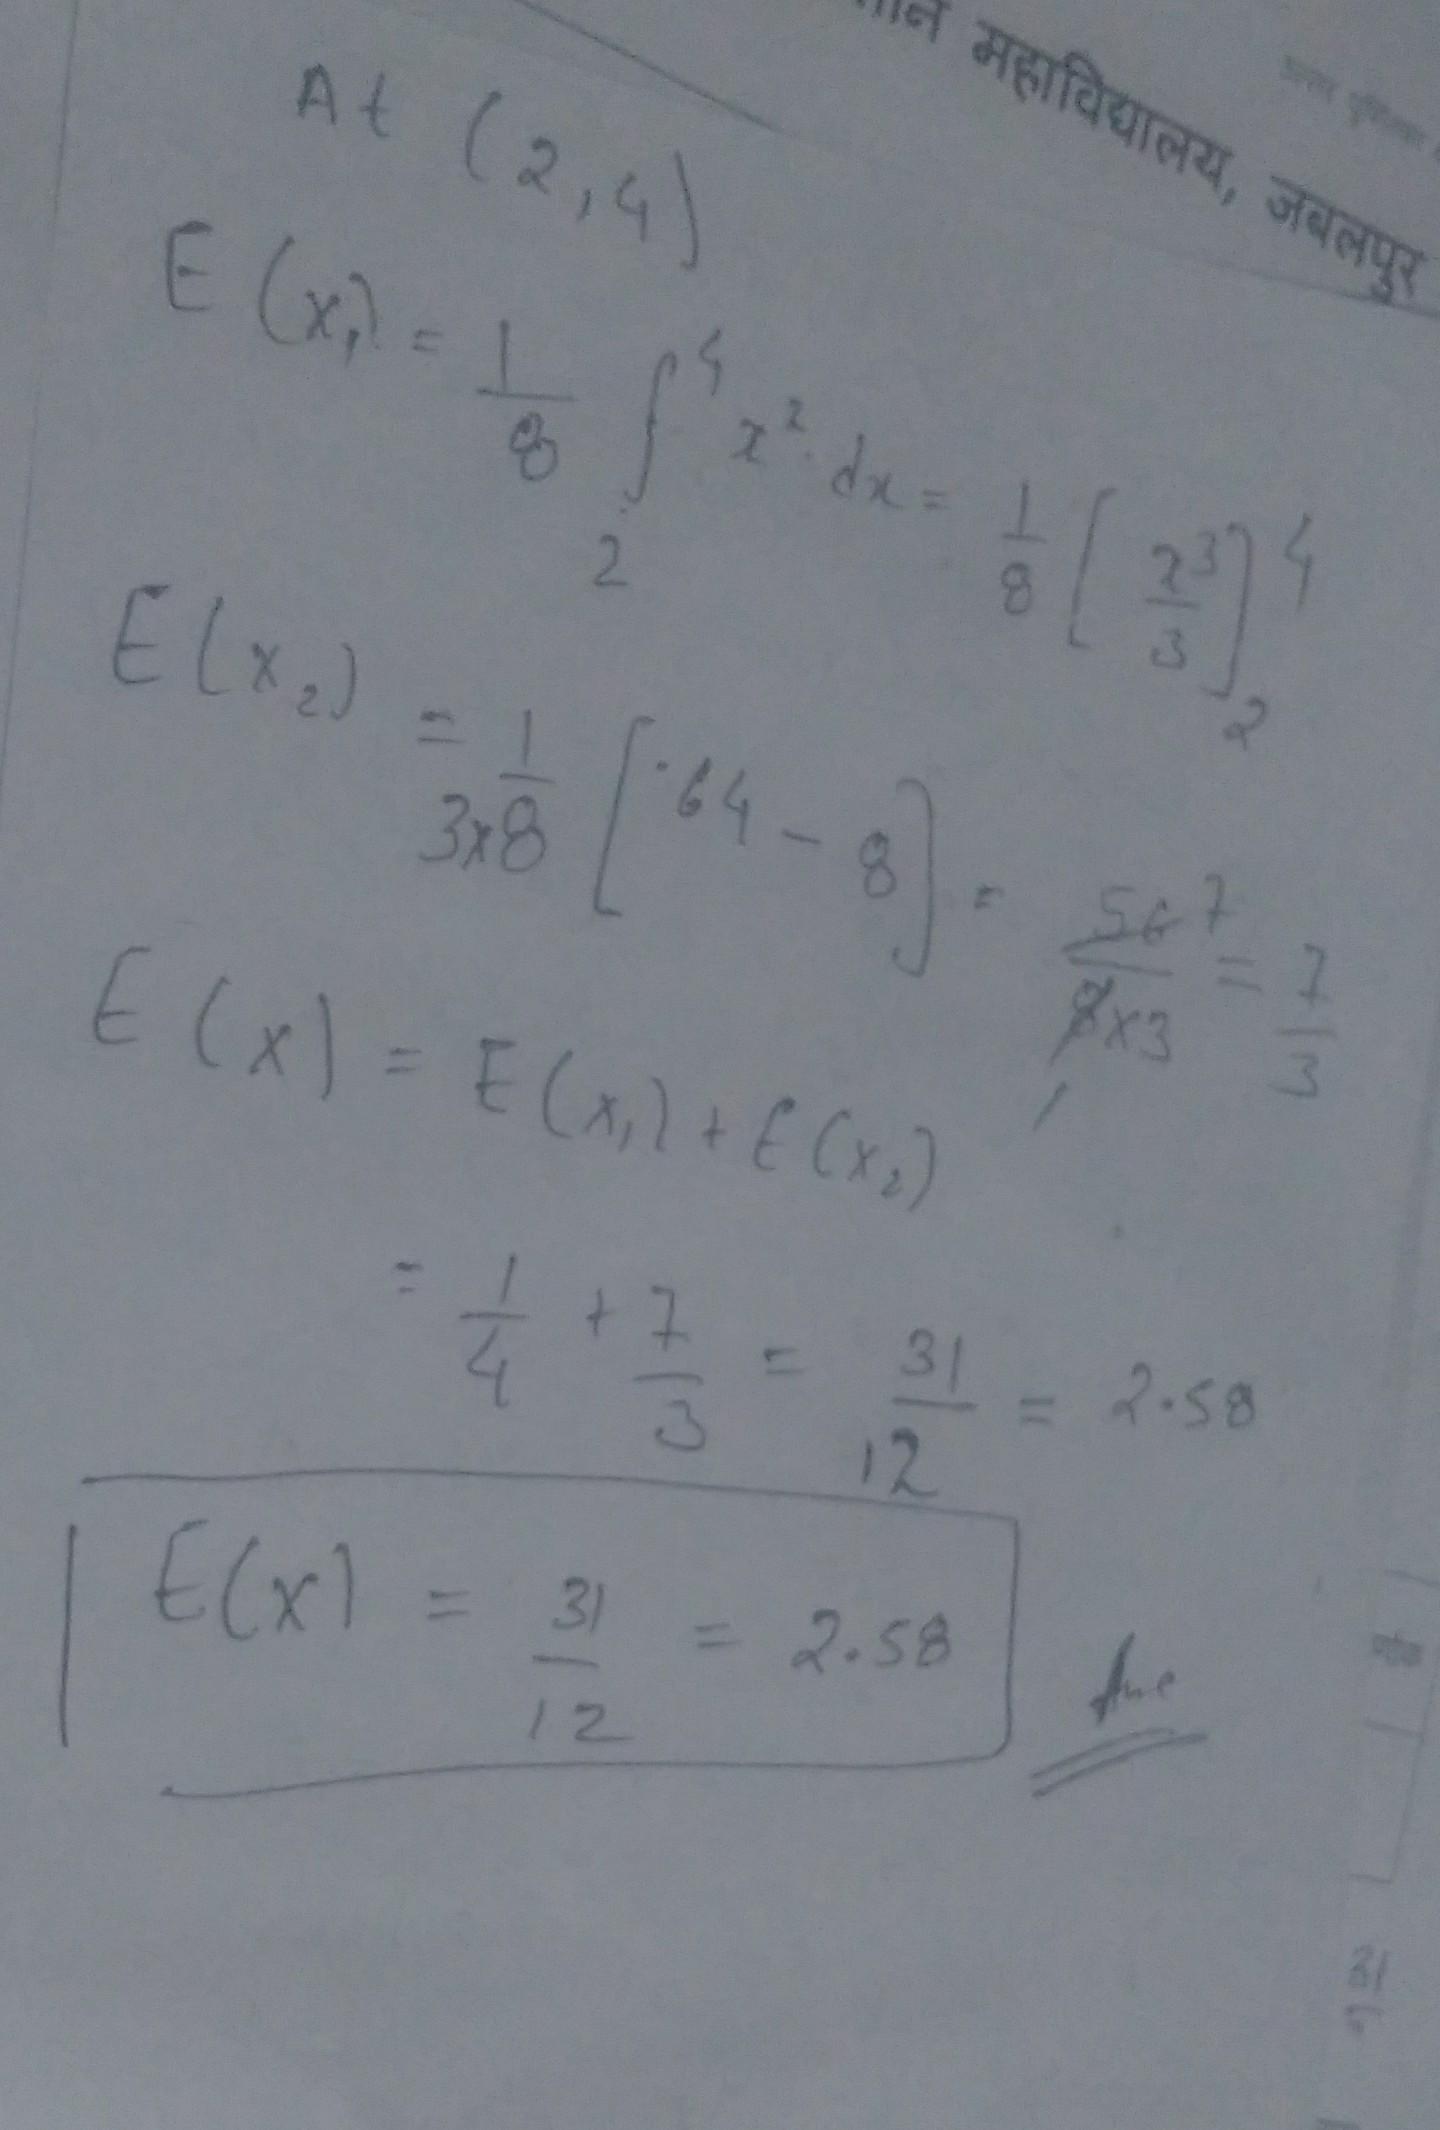 महाविद्यालय, जबलपुर
At (2,4)
E(x₁) = 1/8 ∫₂⁴ x² dx = 1/8 [x³/3]₂⁴
E(x₂) = 1/3×8 [64 - 8] = 56 7/8×3 = 7/3
E(x) = E(x₁) + E(x₂)
= 1/4 + 7/3 = 31/12 = 2.58
E(x) = 31/12 = 2.58
Ans
31